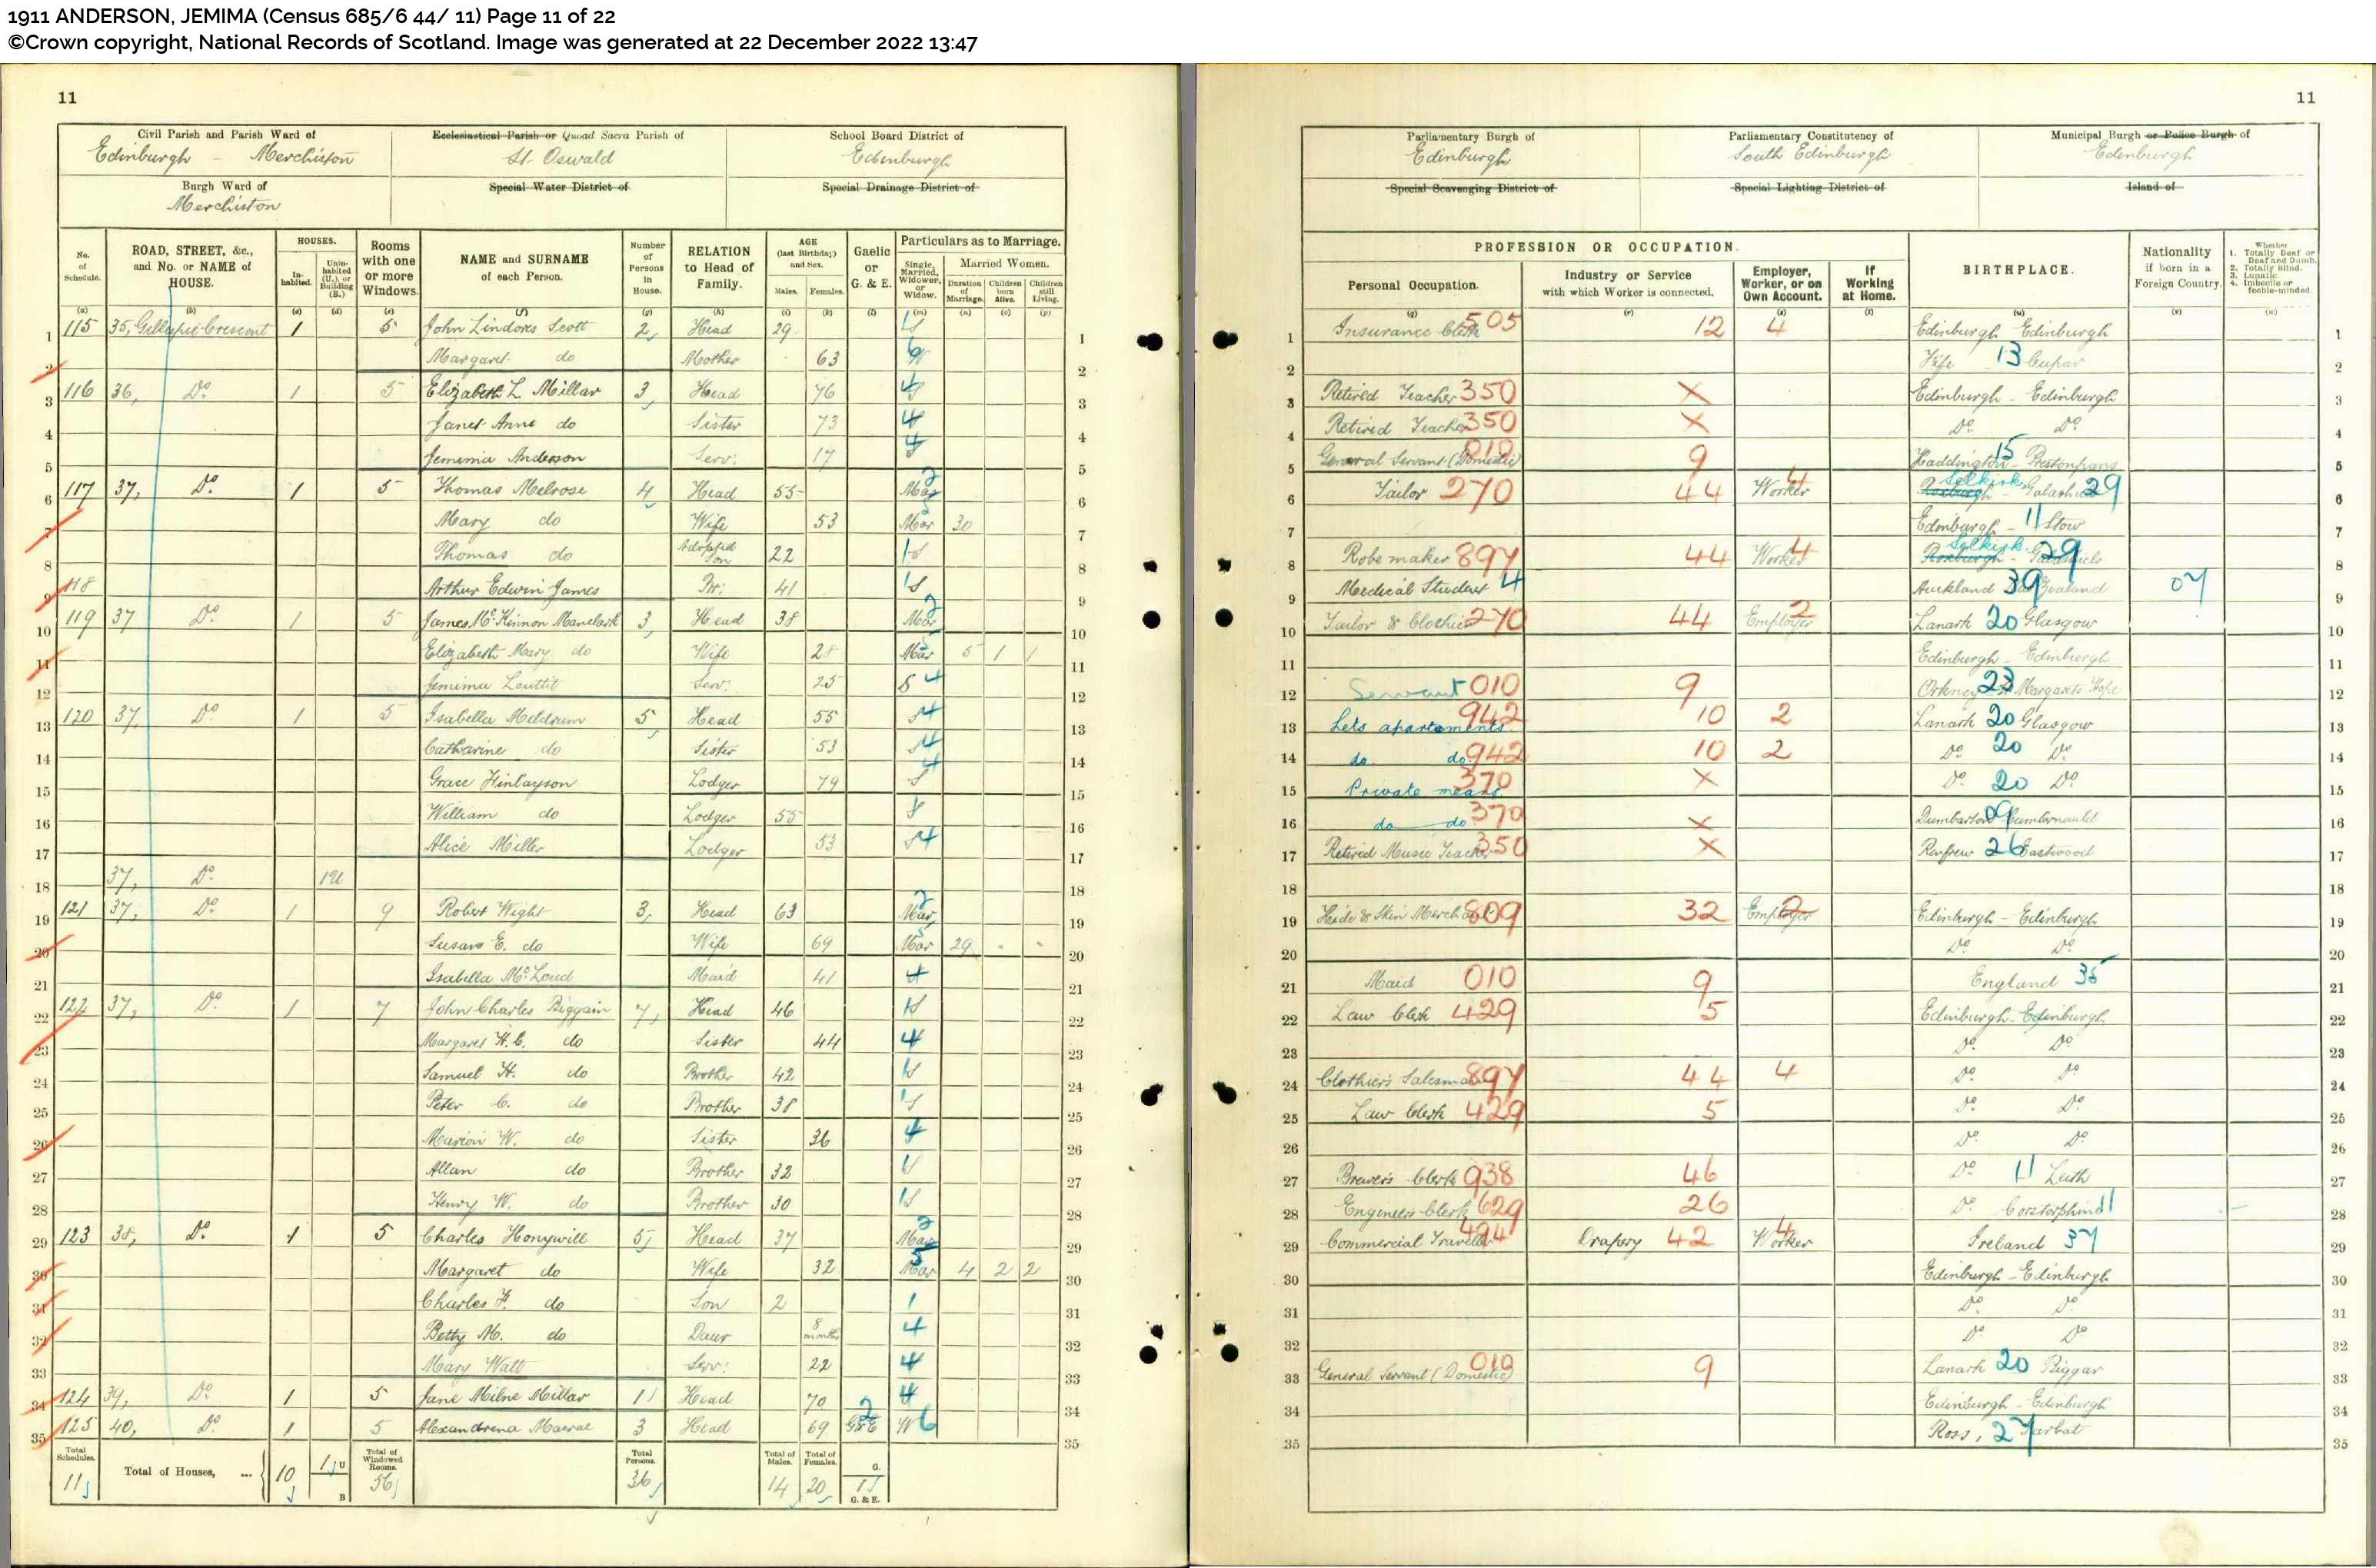 1911 ANDERSON, JEMIMA (Census 685/6 44/ 11) Page 11 of 22
©Crown copyright, National Records of Scotland. Image was generated at 22 December 2022 13:47
11
Civil Parish and Parish Ward of Edinburgh - Merchiston
Ecclesiastical Parish or Quoad Sacra Parish of St. Oswald
School Board District of Edinburgh
Burgh Ward of Merchiston
Special Water District of
Special Drainage District of
No. of Schedule. ROAD, STREET, &c., and No. or NAME of HOUSE. HOUSES. Inhabited. Uninhabited (U.), or Building (B.) Rooms with one or more Windows. NAME and SURNAME of each Person. Number of Persons in House. RELATION to Head of Family. AGE (last Birthday) and Sex. Males. Females. Gaelic or G. & E. Particulars as to Marriage. Single, Married, Widower, or Widow. Married Women. Duration of Marriage. Children born Alive. Children still Living.
1 115 35, Gillespie Crescent 1 5 John Lindores Scott 2 Head 29 S 1
2 Margaret do Mother 63 W 2
3 116 36, Do 1 5 Elizabeth L Millar 3 Head 76 S 3
4 Janet Anne do Sister 73 4
5 Jemima Anderson Serv: 19 5
6 117 37, Do 1 5 Thomas Melrose 4 Head 55 Mar 6
7 Mary do Wife 53 Mar 30 7
8 Thomas do Adopted Son 22 S 8
9 118 Arthur Edwin James 41 S 9
10 119 37 Do 1 5 James McKinnon Manclark 3 Head 38 Mar 10
11 Elizabeth Mary do Wife 28 Mar 5 1 1 11
12 Jemima Louttit Serv: 25 S 4 12
13 120 37, Do 1 5 Isabella Meldrum 5 Head 55 S 4 13
14 Catharine do Sister 53 S 4 14
15 Grace Finlayson Lodger 79 S 4 15
16 William do Lodger 55 S 16
17 Alice Miller Lodger 53 S 4 17
18 37, Do 1U 18
19 121 37, Do 1 9 Robert Wight 3 Head 63 Mar 19
20 Susan E. do Wife 69 Mar 29 - - 20
21 Isabella McLoud Maid 41 4 21
22 122 37, Do 1 7 John Charles Biggain 7 Head 46 S 22
23 Margaret H. C. do Sister 44 4 23
24 Samuel H. do Brother 42 S 24
25 Peter C. do Brother 38 S 25
26 Marion W. do Sister 36 4 26
27 Allan do Brother 32 S 27
28 Henry W. do Brother 30 S 28
29 123 38, Do 1 5 Charles Honywill 5 Head 37 Mar 29
30 Margaret do Wife 32 Mar 4 2 2 30
31 Charles F. do Son 2 1 31
32 Betty M. do Daur 8 months 4 32
33 Mary Watt Serv: 22 4 33
34 124 39, Do 1 5 Jane Milne Millar 1 Head 70 4 34
35 125 40, Do 1 5 Alexandrena Macrae 3 Head 69 G&E 2 W 6 35
Total Schedules. 11 Total of Houses, ... 10 1 U B Total of Windowed Rooms. 56 Total Persons. 36 Total of Males. 14 Total of Females. 20 G. 1 G. & E.
11
Parliamentary Burgh of Edinburgh
Parliamentary Constitutency of South Edinburgh
Municipal Burgh or Police Burgh of Edinburgh
Special Scavenging District of
Special Lighting District of
Island of
PROFESSION OR OCCUPATION. Personal Occupation. Industry or Service with which Worker is connected. Employer, Worker, or on Own Account. If Working at Home. BIRTHPLACE. Nationality if born in a Foreign Country. Whether 1. Totally Deaf or Deaf and Dumb. 2. Totally Blind. 3. Lunatic. 4. Imbecile or feeble-minded
1 Insurance Clerk 505 12 4 Edinburgh Edinburgh 1
2 Fife 13 Cupar 2
3 Retired Teacher 350 X Edinburgh - Edinburgh 3
4 Retired Teacher 350 X Do Do 4
5 General Servant (Domestic) 010 9 Haddington 15 Prestonpans 5
6 Tailor 270 44 Worker 4 Roxburgh Selkirk - Galashiels 29 6
7 Edinburgh - 11 Stow 7
8 Robe maker 897 44 Worker 4 Roxburgh Selkirk - Galashiels 29 8
9 Medical Student 4 Auckland 39 Zealand 07 9
10 Tailor & Clothier 270 44 Employer 2 Lanark 20 Glasgow 10
11 Edinburgh - Edinburgh 11
12 Servant 010 9 Orkney 23 St Margarets Hope 12
13 Lets apartments. 942 10 2 Lanark 20 Glasgow 13
14 do. do. 942 10 2 Do 20 Do 14
15 Private means. 370 X Do 20 Do 15
16 do do 370 X Dumbarton 09 Cumbernauld 16
17 Retired Music Teacher 350 X Renfrew 26 Eastwood 17
18 18
19 Hide & Skin Merchant 809 32 Employer 2 Edinburgh - Edinburgh 19
20 Do Do 20
21 Maid 010 9 England 35 21
22 Law Clerk 429 5 Edinburgh - Edinburgh 22
23 Do Do 23
24 Clothiers Salesman 897 44 4 Do Do 24
25 Law Clerk 429 5 Do Do 25
26 Do Do 26
27 Brewers Clerk 938 46 Do 11 Leith 27
28 Engineers Clerk 629 26 Do Corstorphine 11 28
29 Commercial Traveller 494 Drapery 42 Worker 4 Ireland 37 29
30 Edinburgh - Edinburgh 30
31 Do Do 31
32 Do Do 32
33 General Servant (Domestic) 010 9 Lanark 20 Biggar 33
34 Edinburgh - Edinburgh 34
35 Ross, 27 Tarbat 35